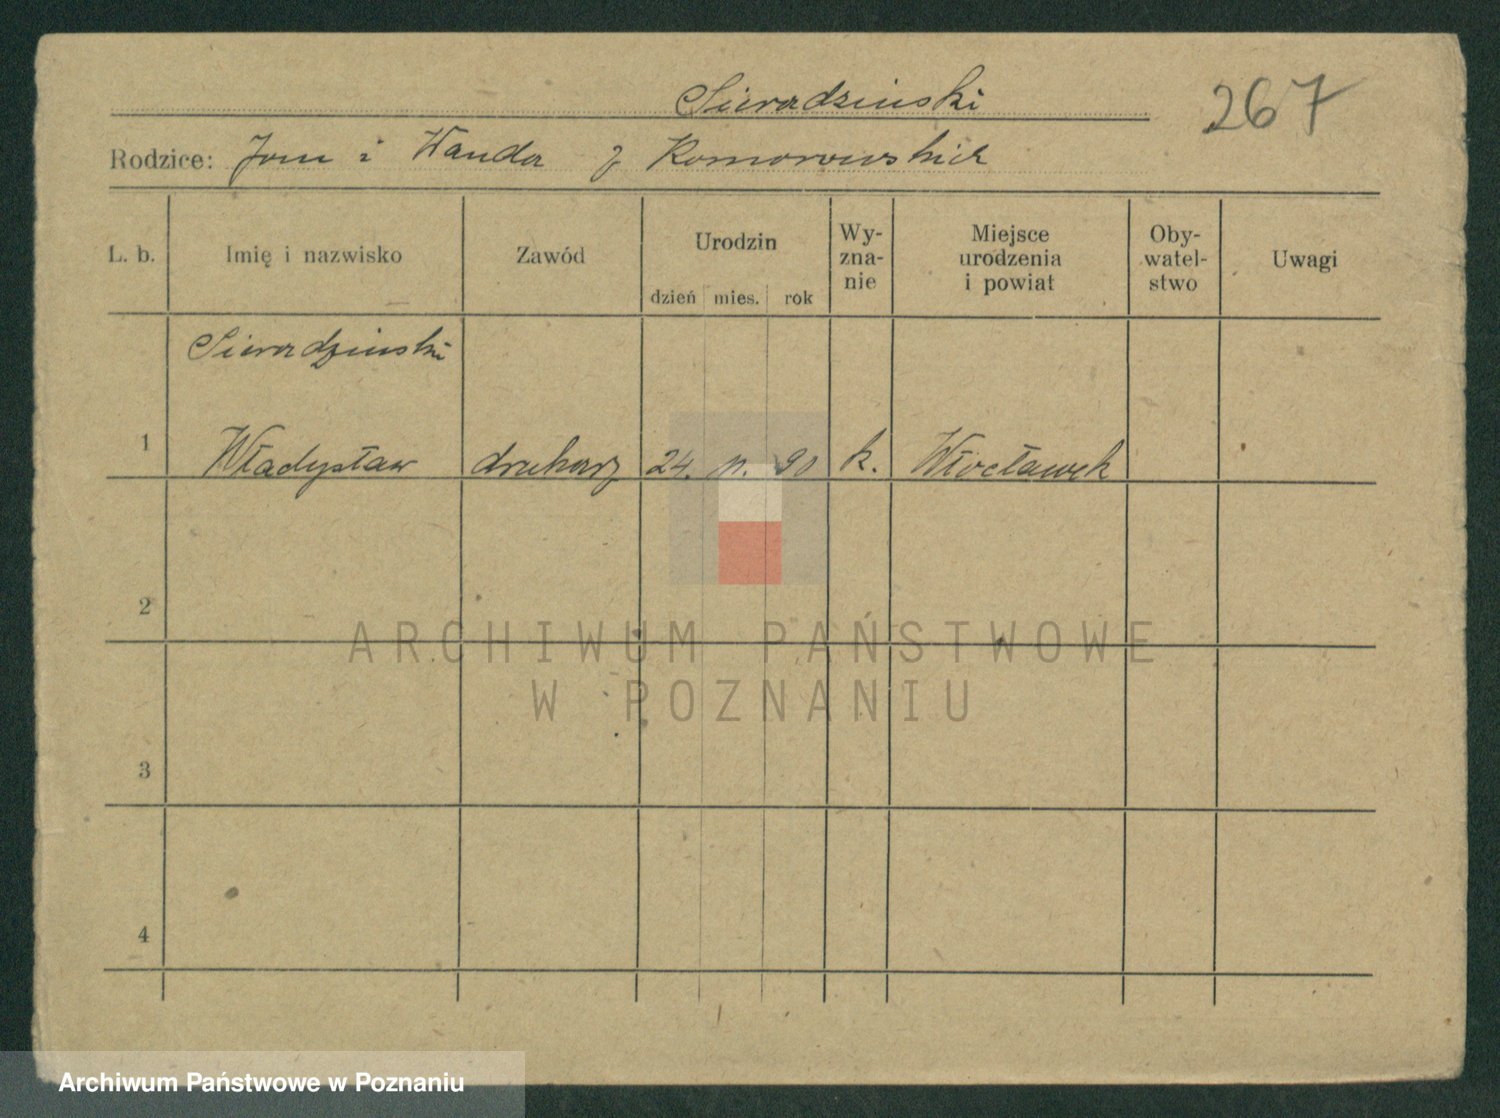 Sieradzinski
267
Rodzice: Jan i Wanda z Komorowskich
L. b.
Imię i nazwisko
Zawód
Urodzin
dzień mies. rok
Wy-
zna-
nie
Miejsce
urodzenia
i powiat
Oby-
watel-
stwo
Uwagi
Sieradzinski
1 Władysław drukarz 24. 90 k. Włocławek
2
3
4
ARCHIWUM PAŃSTWOWE
W POZNANIU
Archiwum Państwowe w Poznaniu